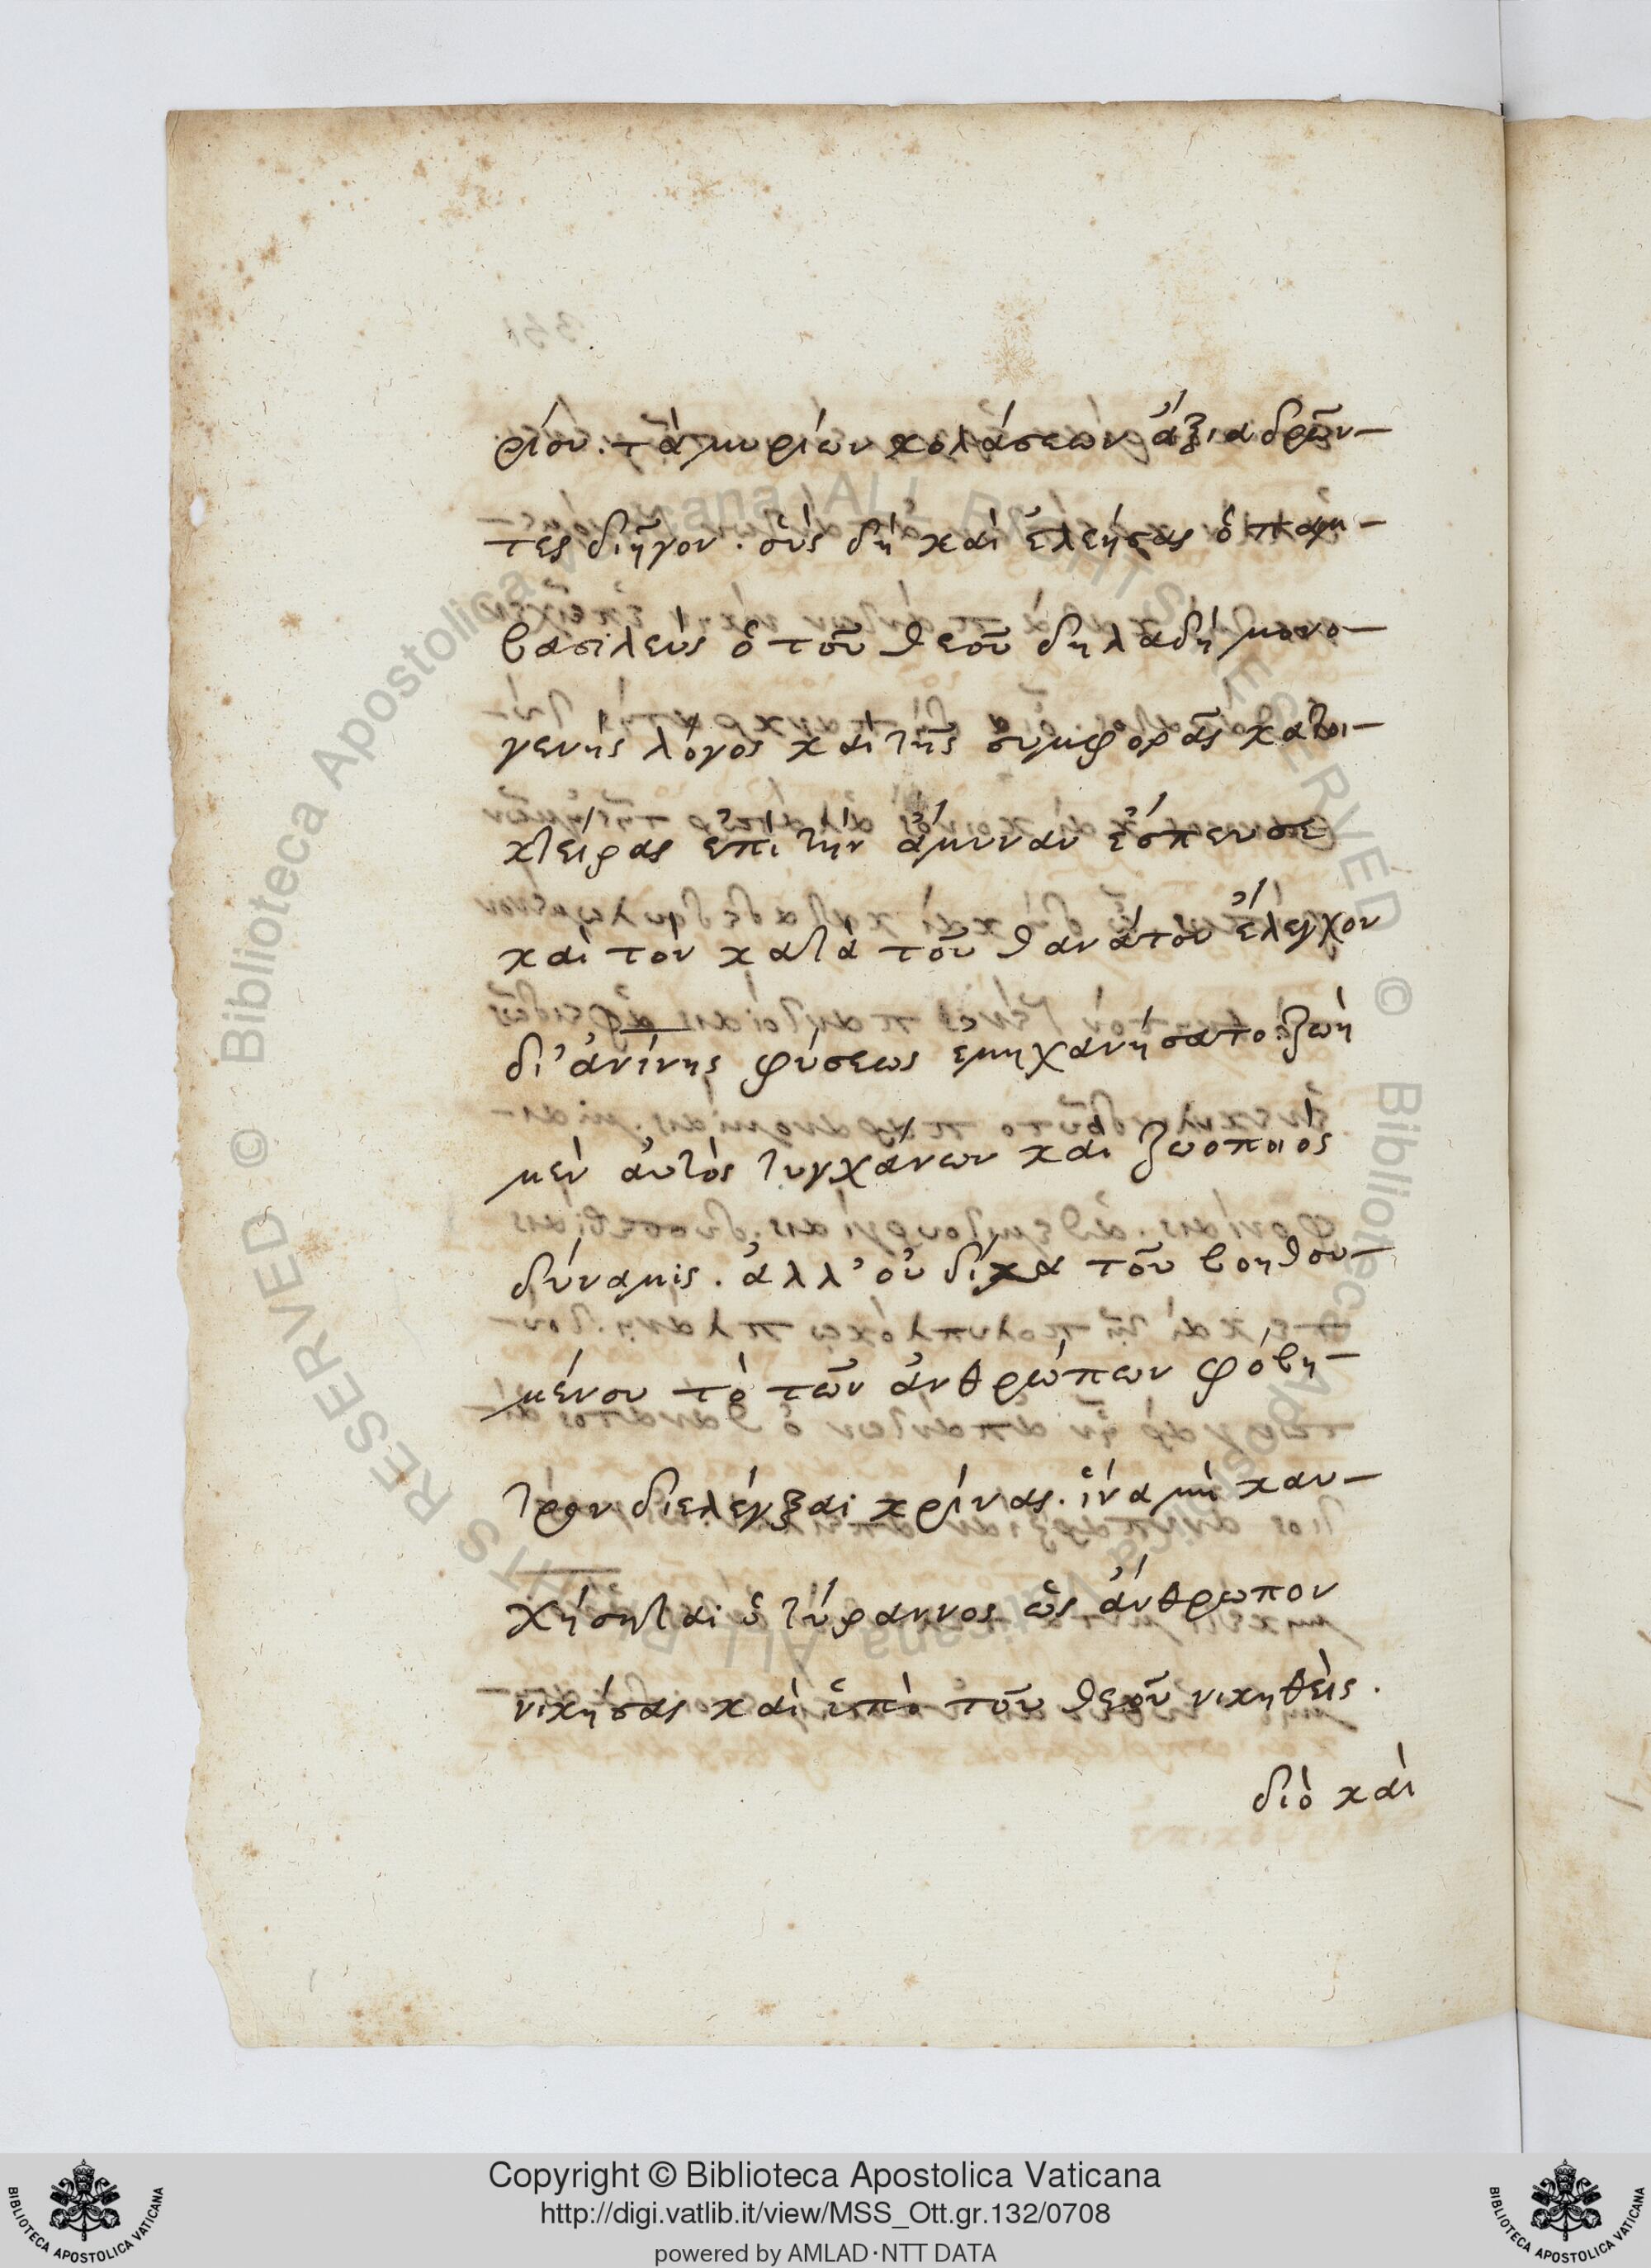 ρίου. τὰ μυρίων κολάσεων ἄξια δρῶν-
τες διῆγον. οὓς δὴ καὶ ἐλεήσας ὁ παμ-
βασιλεὺς ὁ τοῦ θεοῦ δηλαδὴ μονο-
γενὴς λόγος καὶ τῆς συμφορᾶς κατοι-
κτείρας ἐπὶ τὴν ἄμυναν ἔσπευσε
καὶ τὸν κατὰ τοῦ θανάτου ἔλεγχον
δι' ἀνίνης φύσεως ἐμηχανήσατο. ζωὴ
μὲν ἀυτὸς τυγχάνων καὶ ζωοποιὸς
δύναμις. ἀλλ' οὐ δίχα τοῦ βοηθου-
μένου τὸ τῶν ἀνθρώπων φόβη-
τρον διελέγξαι κρίνας. ἵνα μὴ καυ-
χήσηται ὁ τύραννος ὡς ἄνθρωπον
νικήσας καὶ ὑπὸ τοῦ θεοῦ νικηθεὶς.
διὸ καὶ
Copyright © Biblioteca Apostolica Vaticana
http://digi.vatlib.it/view/MSS_Ott.gr.132/0708
powered by AMLAD·NTT DATA
BIBLIOTECA APOSTOLICA VATICANA
BIBLIOTECA APOSTOLICA VATICANA
© Biblioteca Apostolica Vaticana ALL RIGHTS RESERVED © Biblioteca Apostolica Vaticana ALL RIGHTS RESERVED